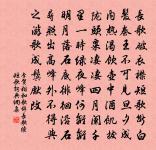 長歌破衣襟短歌斷白
髮秦王不可見旦夕成
內熱渴飲壺中酒飢拔
隴頭粟淒淒四月闌千
里一時綠夜峰何離離
明月落石底徘徊沿石
尋照出高峰外不得與
之游歌成鬢先改
李賀相和歌辭長歌續
短歌